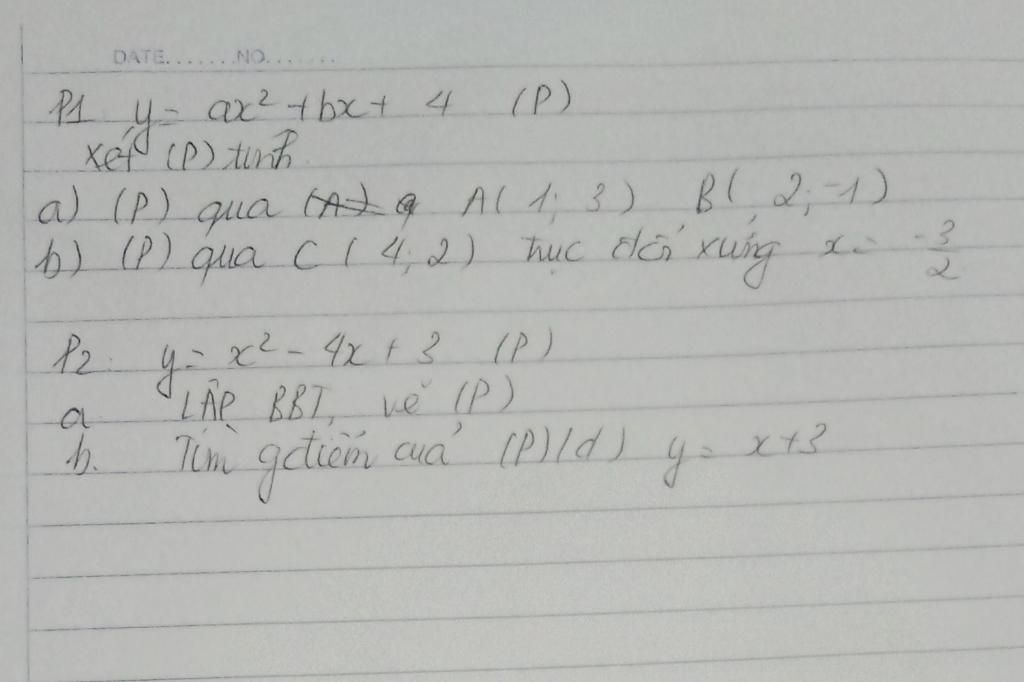 DATE........NO........
P1 y = ax² + bx + 4 (P)
xét (P) tính
a) (P) qua A( 1; 3 ) B( 2; -1 )
b) (P) qua C ( 4; 2 ) trục đối xứng x = -3/2
P2. y = x² - 4x + 3 (P)
a LẬP BBT, vẽ (P)
b. Tìm gđiểm của (P)(d) y = x+3